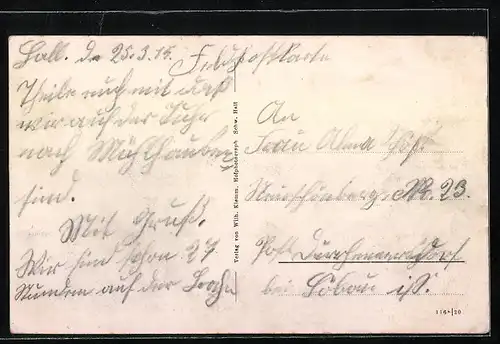 Hall. d. 25.3.15.
Feldpostkarte
Theile euch mit daß
wir auf der Fuhr
nach Mühlhausen
sind.
Mit Gruß.
Wir sind schon 27
Stunden auf der
An
Frau Alma
Neuschönberg. Nr. 23.
Post
bei Löbau i/S.
Verlag von Wilh. Klemm, Hofphotograph Schw. Hall